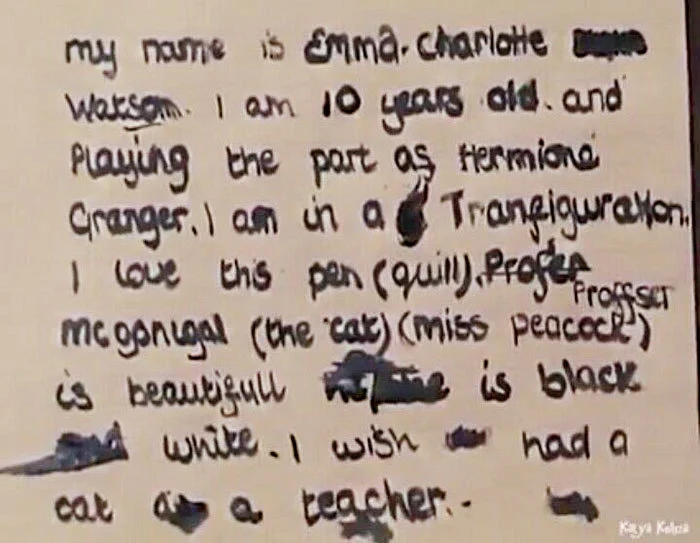 my name is Emma. Charlotte
Watson. I am 10 years old. and
Playing the part as Hermione
Granger. I am in a Tranfiguration.
I love this pen (quill). Profer
Proffser
mcgonigal (the cat) (miss peacock)
is beautifull is black
and white. I wish had a
cat as a teacher.-
Katya Kelma